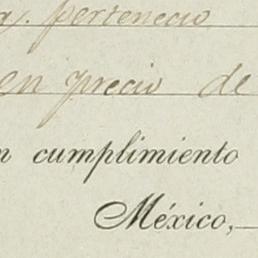 pertenecio
en precio de
n cumplimiento
México,